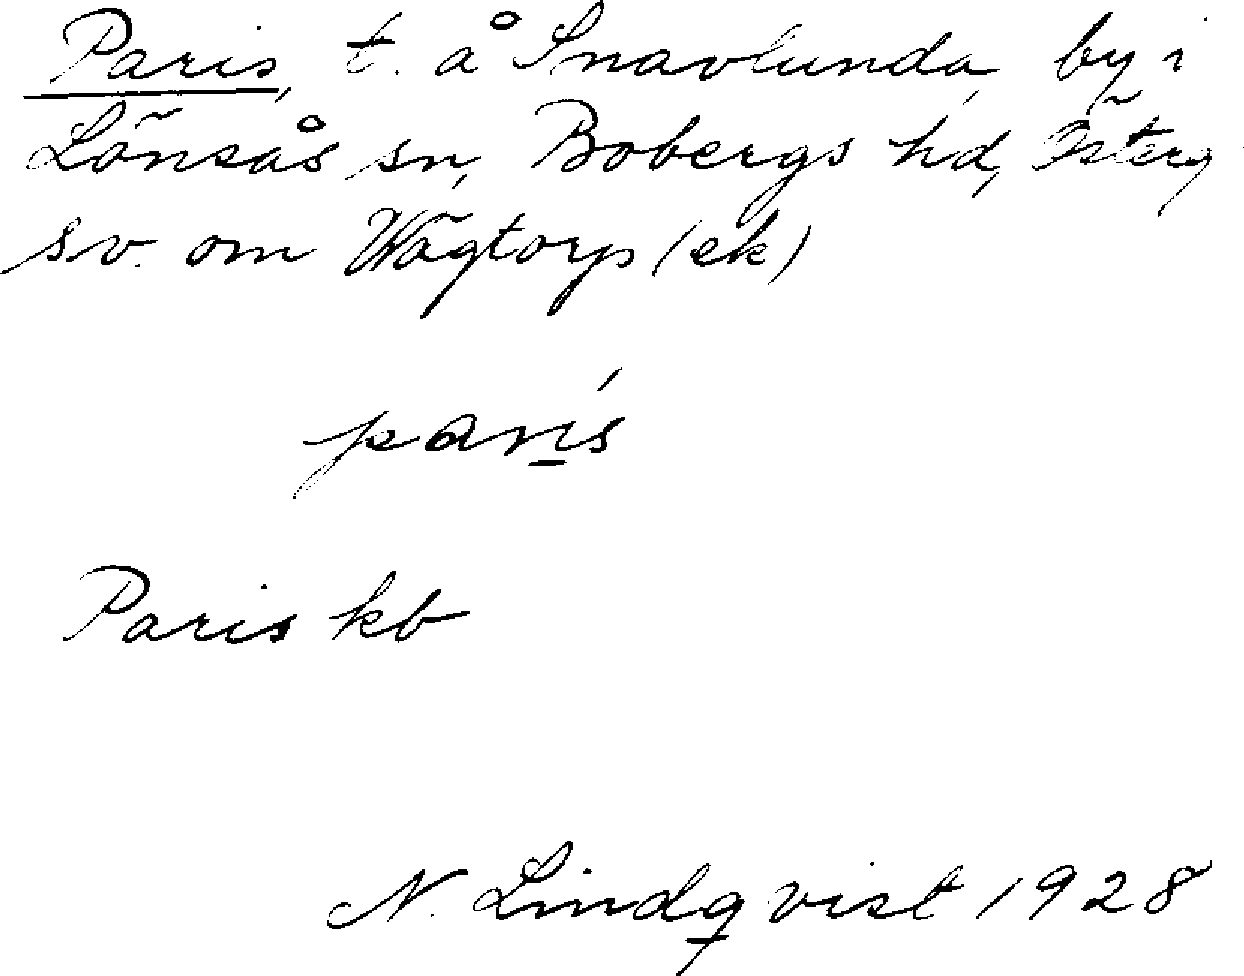 Paris, t. å Snavlunda by i
Lönsås sn, Bobergs hd, Österg
sv. om Wägtorp (ek)
parís
Paris kb
N. Lindqvist 1928